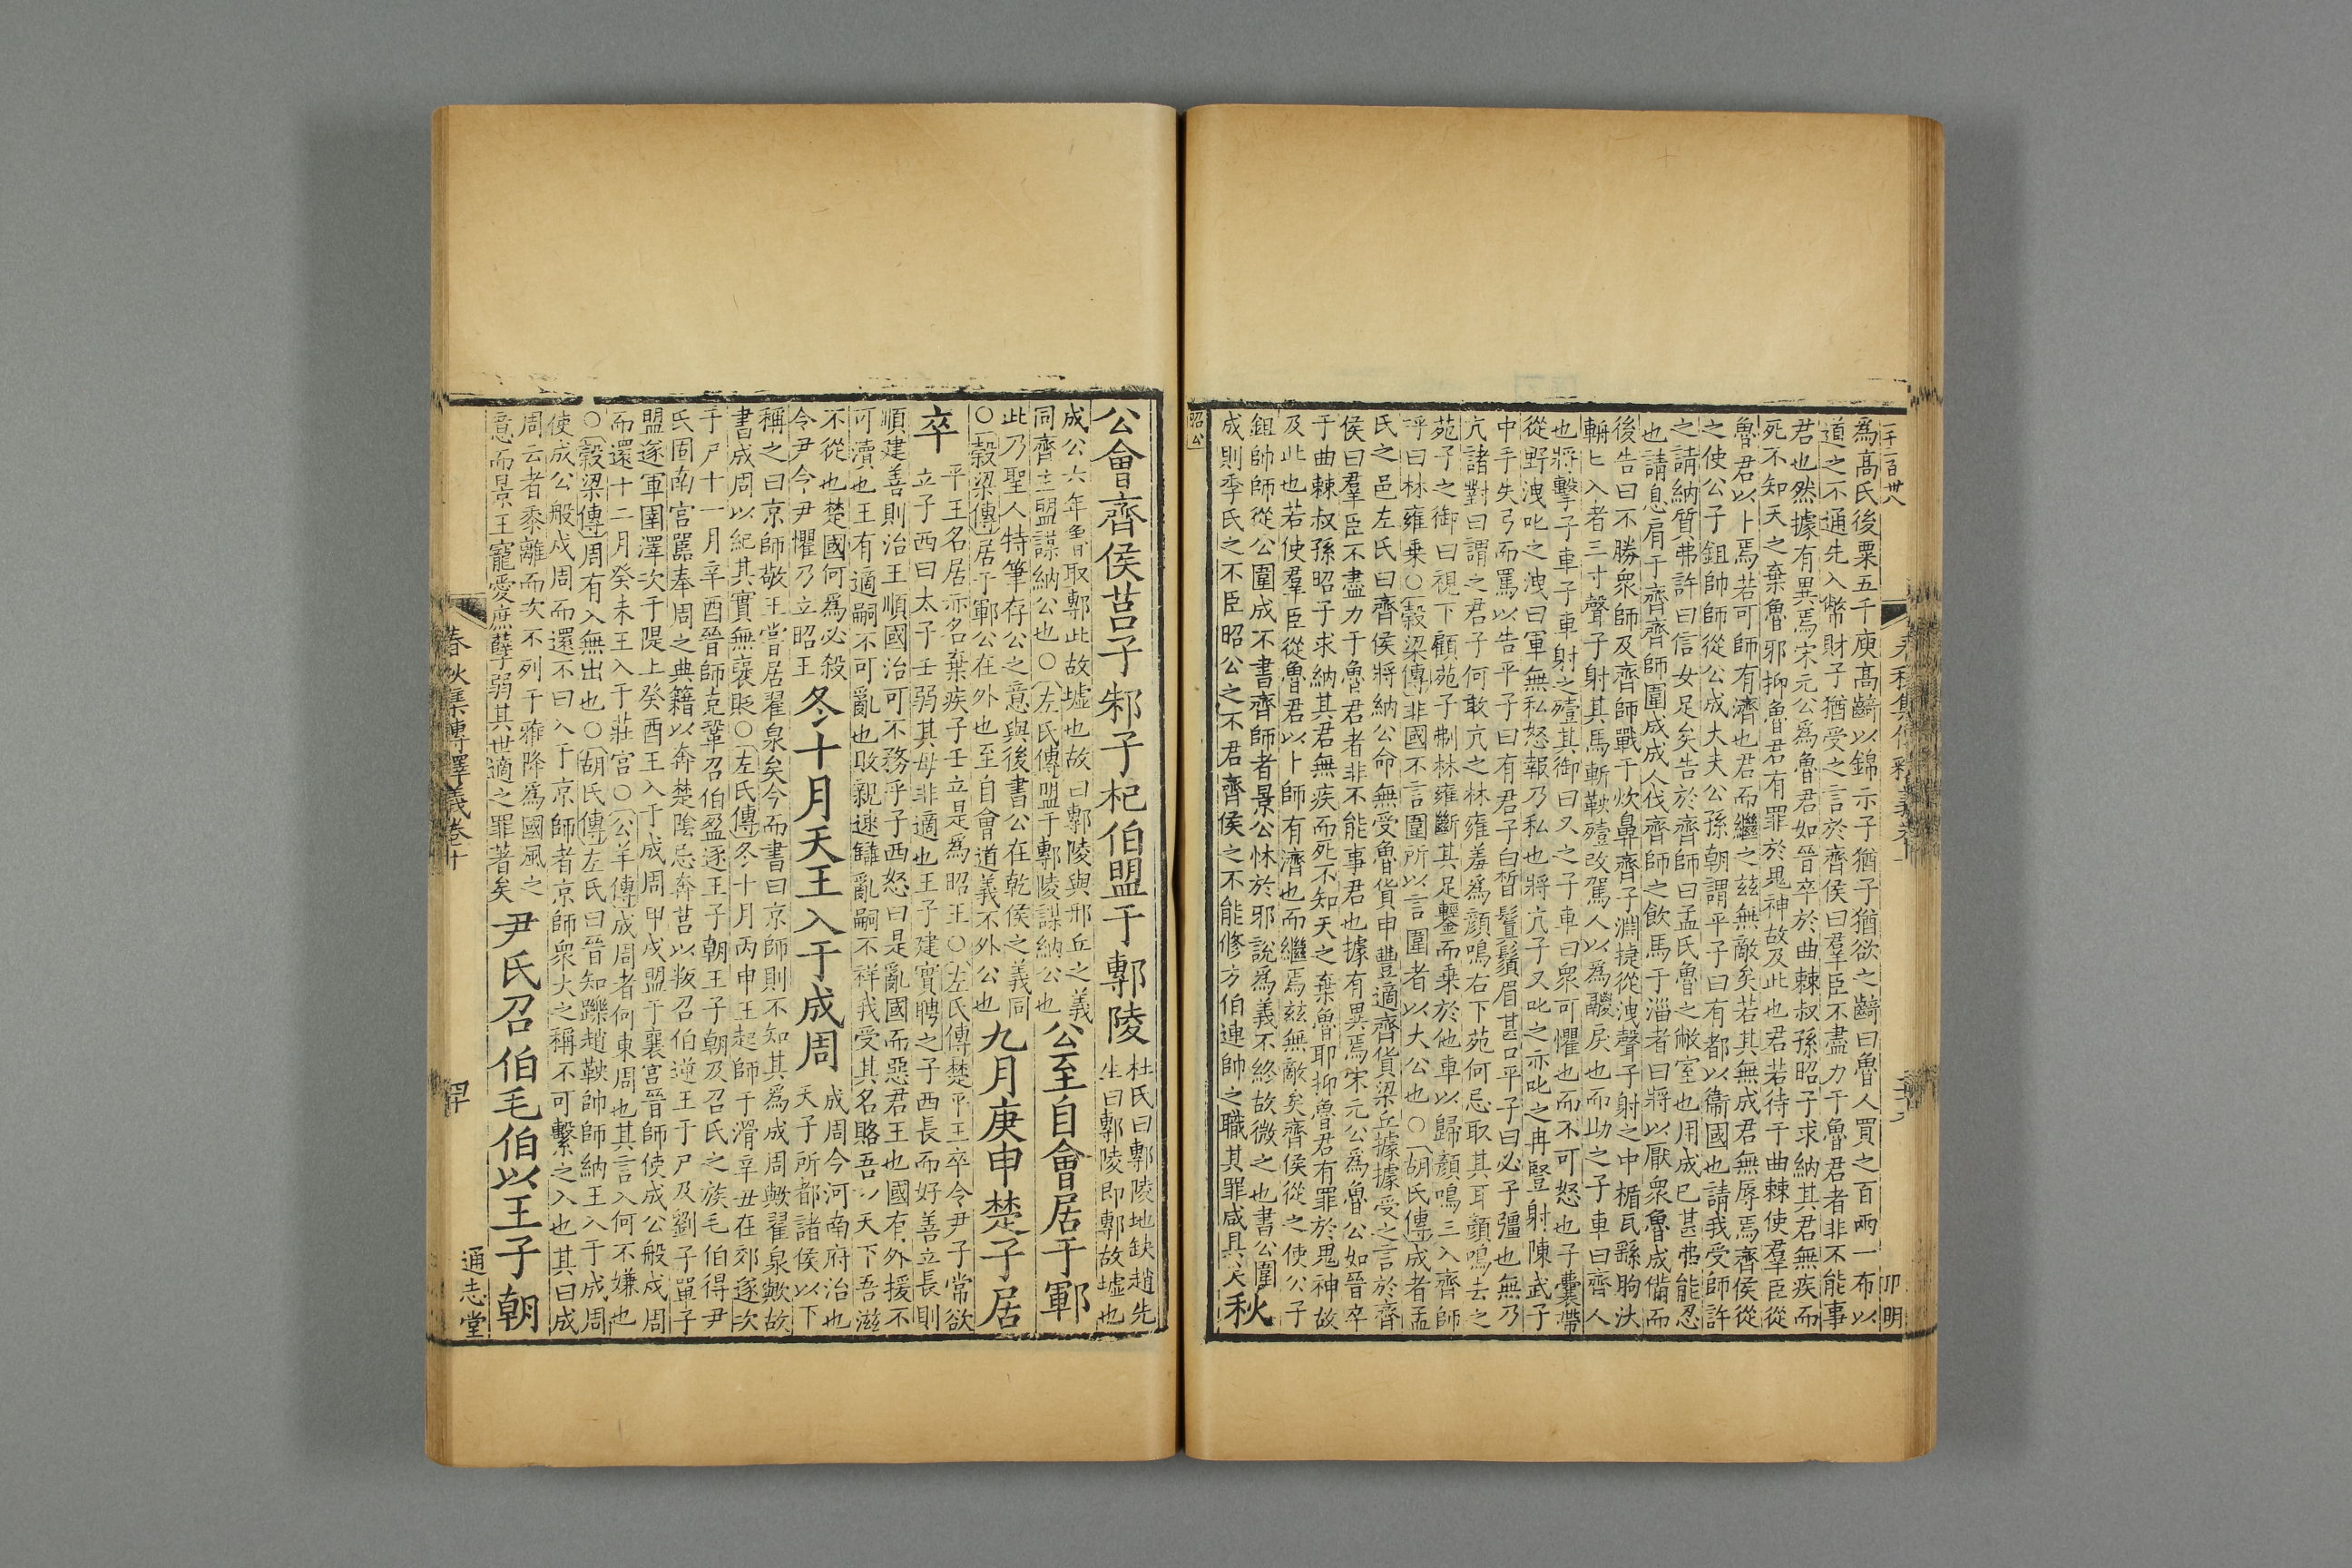 二千一百卅八
印明
為高氏後粟五千庾高齮以錦示子猶子猶欲之齮曰魯人買之百兩一布以
道之不通先入幣財子猶受之言於齊侯曰羣臣不盡力于魯君者非不能事
君也然據有異焉宋元公為魯君如晉卒於曲棘叔孫昭子求納其君無疾而
死不知天之棄魯邪抑魯君有罪於鬼神故及此也君若待于曲棘使羣臣從
魯君以卜焉若可師有濟也君而繼之茲無敵矣若其無成君無辱焉齊侯從
之使公子鉏帥師從公成大夫公孫朝謂平子曰有都以衞國也請我受師許
之請納質弗許曰信女足矣告於齊師曰孟氏魯之敝室也用成已甚弗能忍
也請息肩于齊齊師圍成成人伐齊師之飲馬于淄者曰將以厭衆魯成備而
後告曰不勝衆師及齊師戰于炊鼻齊子淵捷從洩聲子射之中楯瓦繇朐汏
輈匕入者三寸聲子射其馬斬鞅殪改駕人以為鬷戾也而助之子車曰齊人
也將擊子車子車射之殪其御曰又之子車曰衆可懼也而不可怒也子囊帶
從野洩叱之洩曰軍無私怒報乃私也將亢子又叱之亦叱之冉豎射陳武子
中手失弓而罵以告平子曰有君子白皙鬒鬚眉甚口平子曰必子彊也無乃
亢諸對曰謂之君子何敢亢之林雍羞為顏鳴右下苑何忌取其耳顏鳴去之
苑子之御曰視下顧苑子刜林雍斷其足鑋而乗於他車以歸顏鳴三入齊師
呼曰林雍乗○穀梁傳非國不言圍所以言圍者以大公也○胡氏傳成者孟
氏之邑左氏曰齊侯將納公命無受魯貨申豐適齊貨梁丘據據受之言於齊
侯曰羣臣不盡力于魯君者非不能事君也據有異焉宋元公為魯公如晉卒
于曲棘叔孫昭子求納其君無疾而死不知天之棄魯耶抑魯君有罪於鬼神故
及此也若使羣臣從魯君以卜師有濟也而繼焉茲無敵矣齊侯從之使公子
鉏帥師從公圍成不書齊師者景公怵於邪說為義不終故微之也書公圍
成則季氏之不臣昭公之不君齊侯之不能修方伯連帥之職其罪咸具矣
秋
昭公
公會齊侯莒子邾子杞伯盟于鄟陵
杜氏曰鄟陵地缺趙先
生曰鄟陵即鄟故墟也
成公六年魯取鄟此故墟也故曰鄟陵與邢丘之義
同齊主盟謀納公也○左氏傳盟于鄟陵謀納公也
公至自會居于鄆
此乃聖人特筆存公之意與後書公在乾侯之義同
○穀梁傳居于鄆公在外也至自會道義不外公也
九月庚申楚子居
卒
平王名居示名棄疾子壬立是為昭王○左氏傳楚平王卒令尹子常欲
立子西曰太子壬弱其母非適也王子建實聘之子西長而好善立長則
順建善則治王順國治可不務乎子西怒曰是亂國而惡君王也國有外援不
可瀆也王有適嗣不可亂也敗親速讎亂嗣不祥我受其名賂吾以天下吾滋
不從也楚國何為必殺
令尹令尹懼乃立昭王
冬十月天王入于成周
成周今河南府治也
天子所都諸侯以下
稱之曰京師敬王嘗居翟泉矣今而書曰京師則不知其為成周歟翟泉歟故
書成周以紀其實無襃貶○左氏傳冬十月丙申王起師于滑辛丑在郊遂次
于尸十一月辛酉晉師克鞏召伯盈逐王子朝王子朝及召氏之族毛伯得尹
氏固南宮嚚奉周之典籍以奔楚陰忌奔莒以叛召伯逆王于尸及劉子單子
盟遂軍圉澤次于隄上癸酉王入于成周甲戌盟于襄宮晉師使成公般戍周
而還十二月癸未王入于莊宮○公羊傳成周者何東周也其言入何不嫌也
○穀梁傳周有入無出也○胡氏傳左氏曰晉知躒趙鞅帥師納王入于成周
使成公般戍周而還不曰入于京師者京師衆大之稱不可繫之入也其曰成
周云者黍離而次不列于雅降為國風之
意而景王寵愛庶孽弱其世適之罪著矣
尹氏召伯毛伯以王子朝
春秋集傳釋義卷十
四十
通志堂